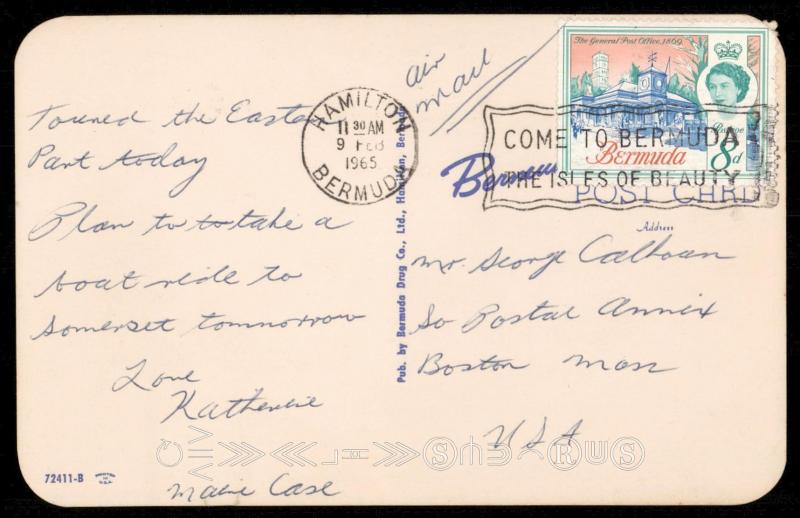 Toured the Easter
Part today
Plan to to take a
boat ride to
Somerset tomnorrow
Love
Katherine
Marie Case
72411-B
Pub. by Bermuda Drug Co., Ltd., Hamilton, Bermuda
air
mail
HAMILTON
11 30 AM
9 FEB
1965
BERMUDA
The General Post Office, 1869
Postage
Bermuda
8d
COME TO BERMUDA
THE ISLES OF BEAUTY
Bermuda
POST CARD
Address
Mr. George Calhoun
So Postal Annex
Boston Mass
USA